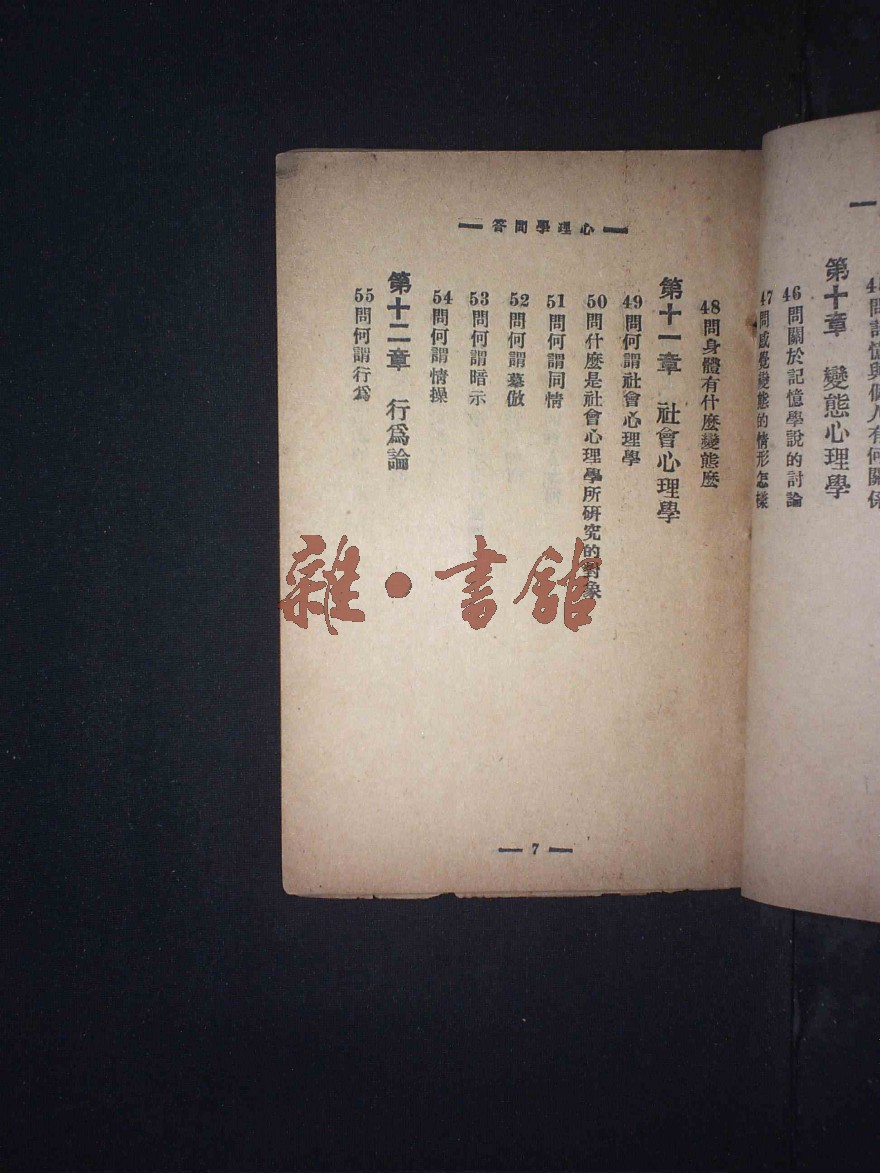 45問記憶與個人有何關係
第十章　變態心理學
46問關於記憶學說的討論
47問感覺變態的情形怎樣
心理學問答
48問身體有什麼變態麼
第十一章　社會心理學
49問何謂社會心理學
50問什麼是社會心理學所研究的對象
51問何謂同情
52問何謂摹倣
53問何謂暗示
54問何謂情操
第十二章　行爲論
55問何謂行爲
7
雜·書館